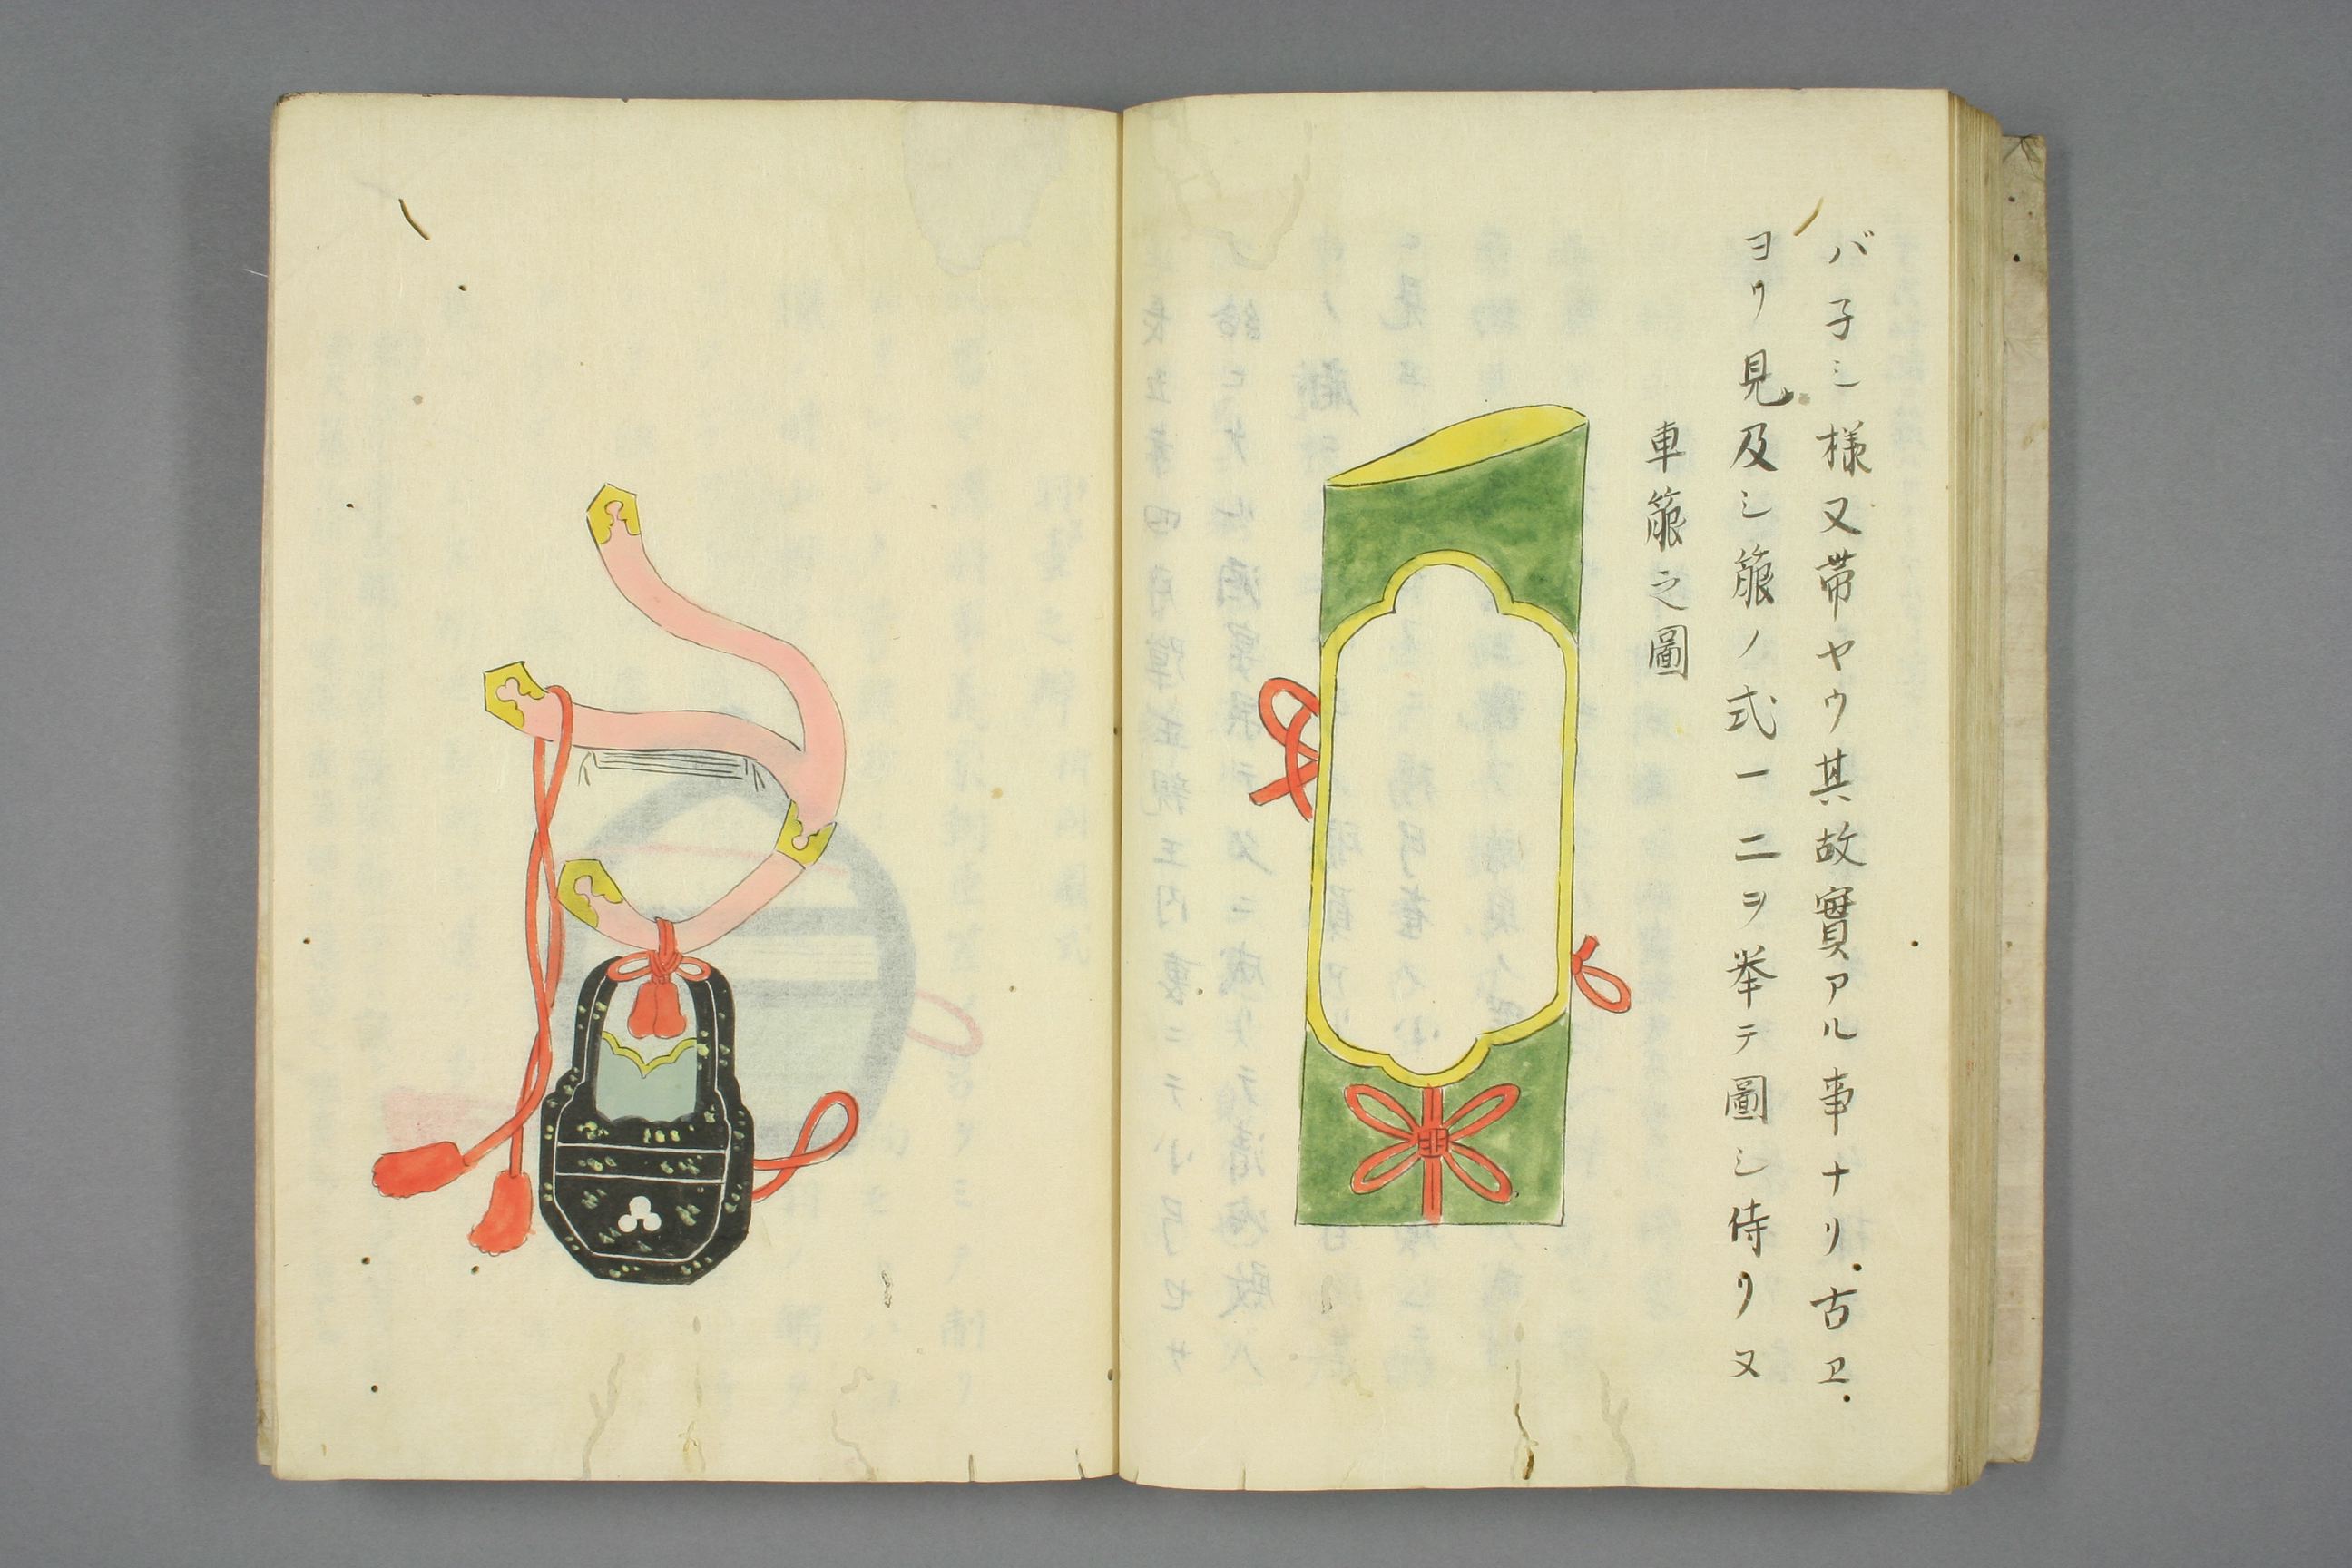 バ子シ様又帯ヤウ其故實アル事ナリ.古ヱ.
ヨリ見及シ箙ノ式一二ヲ挙テ圖シ侍リヌ
車箙之圖